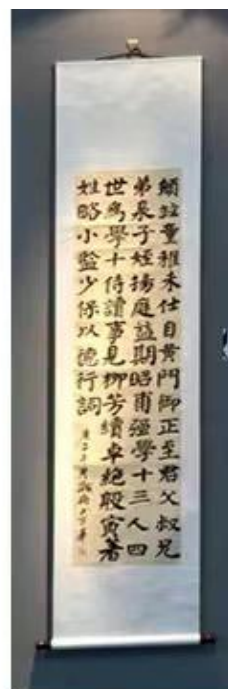 童稚未仕自黄門御正至君父叔兄
弟衆子姪揚庭益期昭甫强學十三人四
世為學士侍讀事見柳芳續卓絶殷寅著
姓略小監少保以德行詞